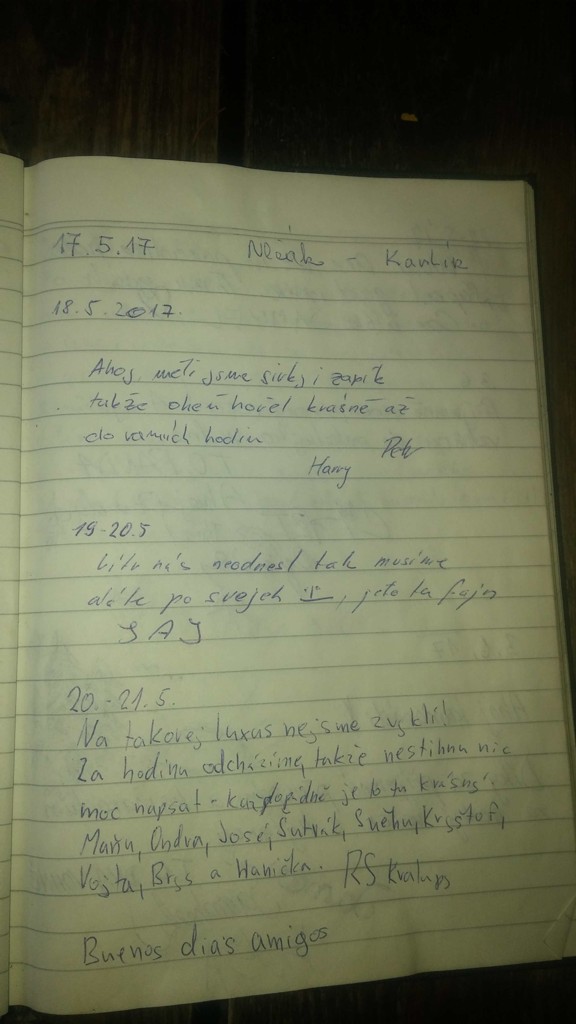 17.5.17 - Kavlík
18.5.2017.
Ahoj, měli jsme sirky i
takže oheň hořel krásně až
do ranních hodin Petr
Harry
19-20.5
nás neodnesl tak musíme
po svejch, je to tu fajn
J A J
20.-21.5.
Na takovej luxus nejsme zvyklí!
Za hodinu odcházíme, takže nestihnu nic
moc napsat - každopádně je to tu krásný.
Ondra, José, Šutrák, Sněhu, Kryštof,
Vojta, Brys a Hanička. RS Kralupy
Buenos días amigos